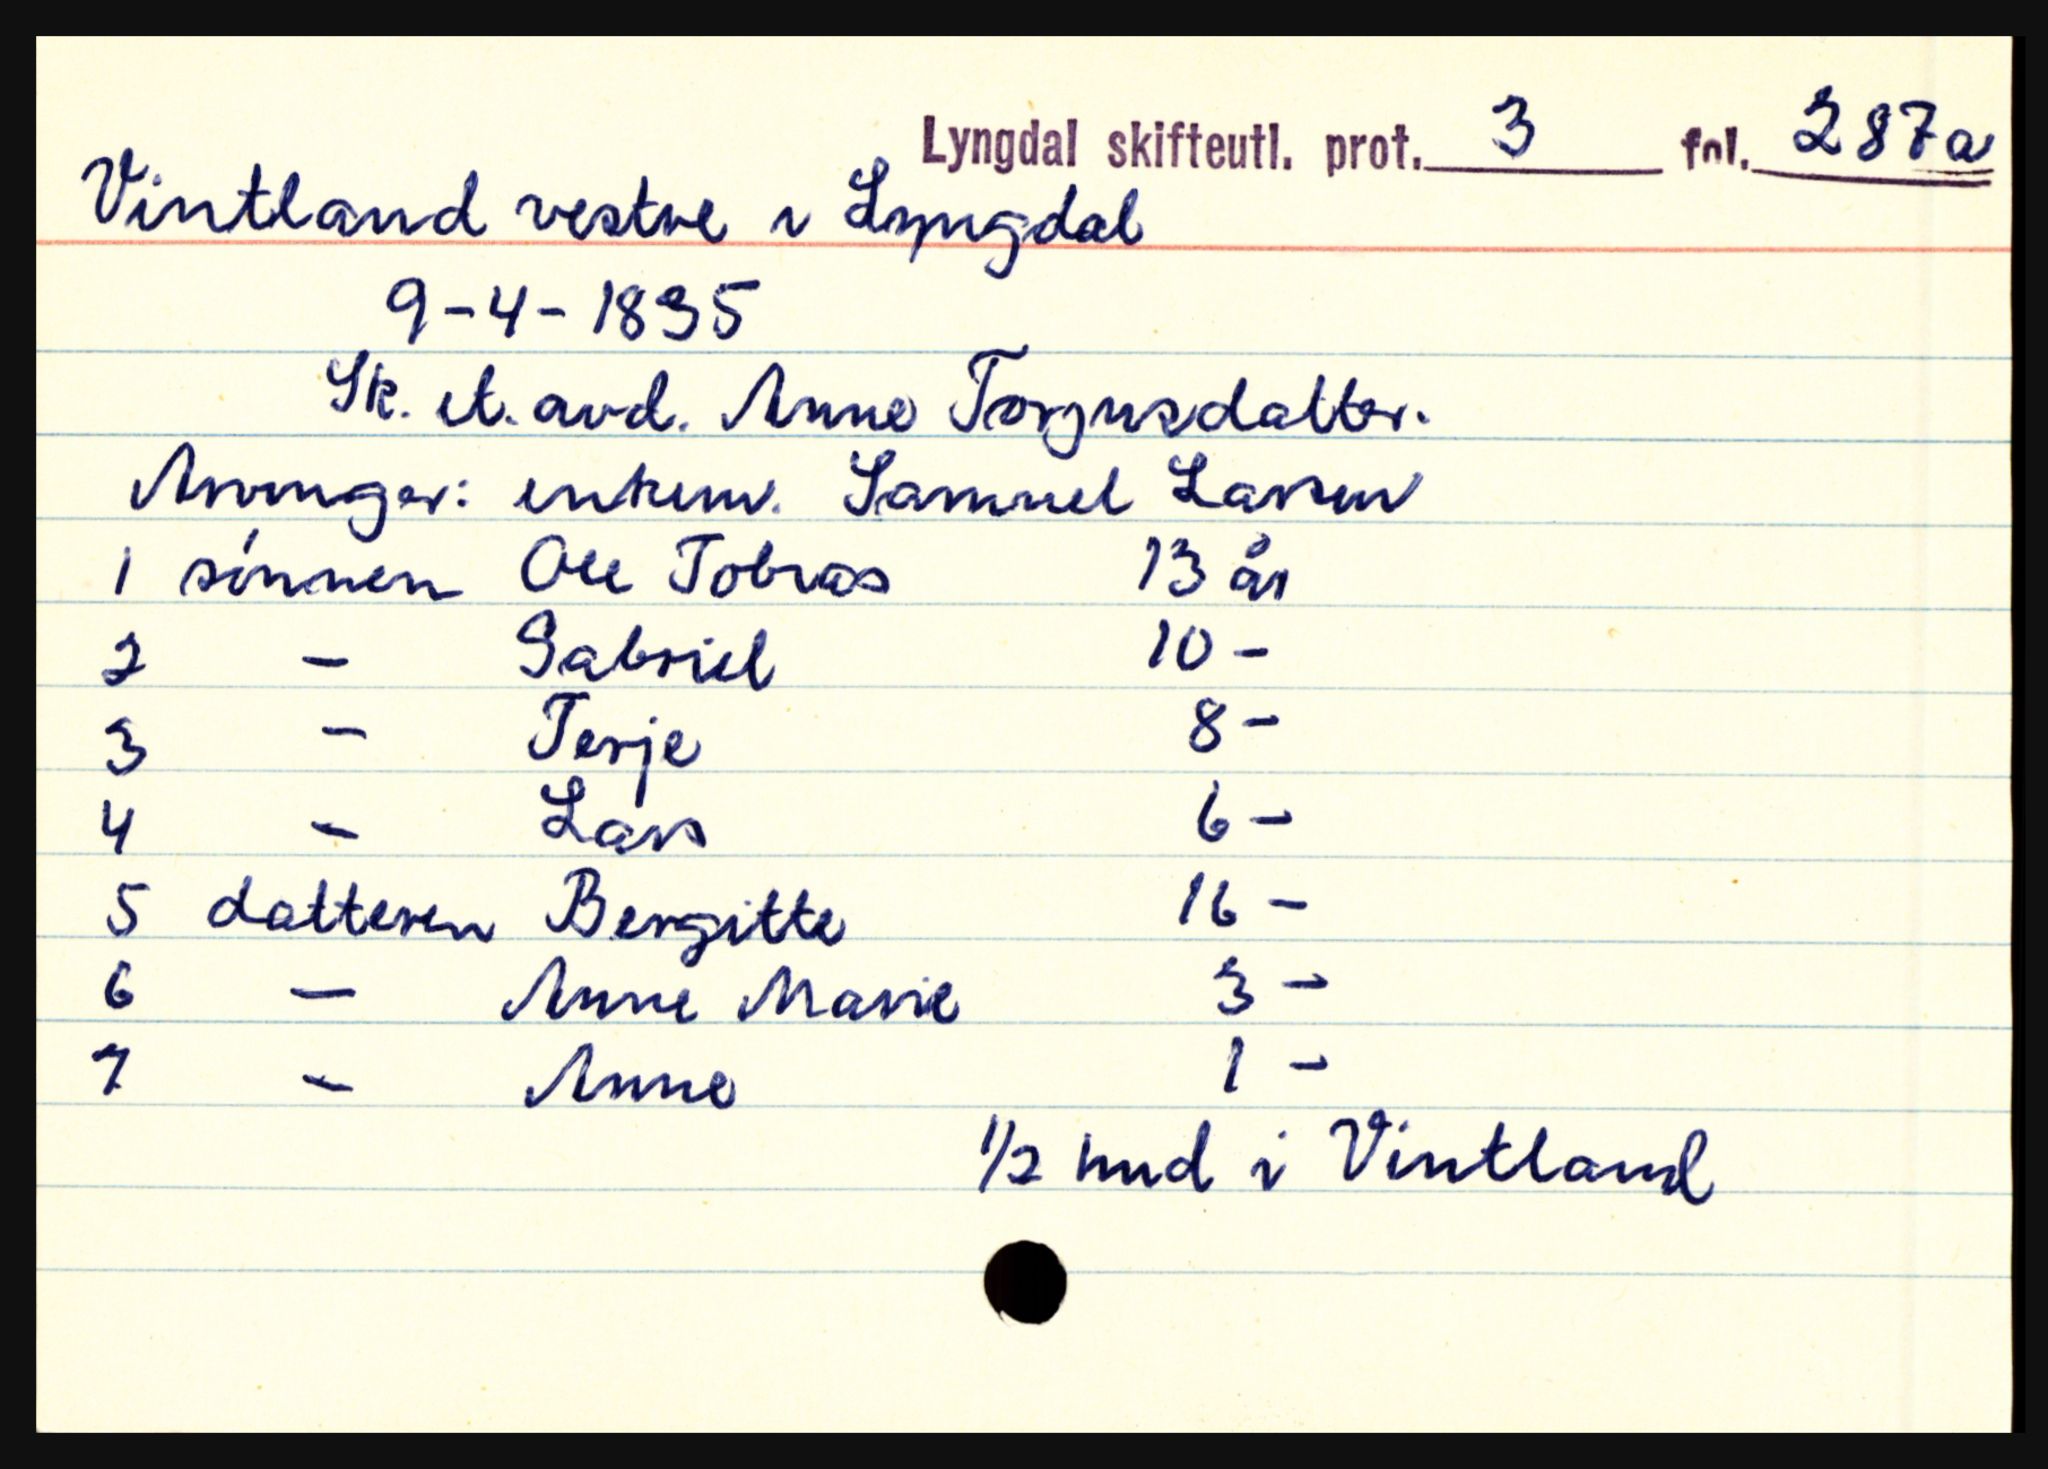 Lyngdal skifteutl. prot. 3 fol. 287a
Vintland vestre i Lyngdal
9-4-1835
Sk. et. avd. Anne Torjusdatter.
Arvinger: enkem. Samuel Larsen
1 sønnen Ole Tobias 13 år
2 - Gabriel 10 -
3 - Terje 8 -
4 - Lars 6 -
5 datteren Bergitte 16 -
6 - Anne Marie 3 -
7 - Anne 1 -
1/2 hud i Vintland